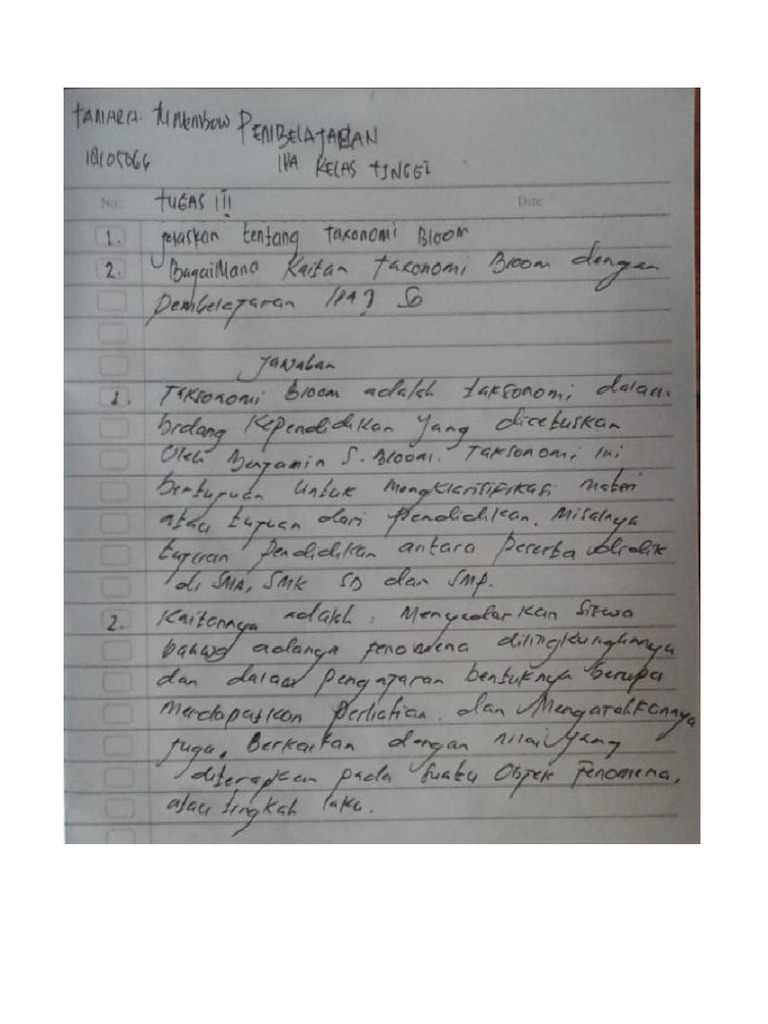 TAMARA. tumembow PEMBELAJARAN
18105064 IPA KELAS TINGGI
No.: TUGAS III Date
1. jelaskan tentang Taxonomi Bloom
2. BagaiMana Kaitan Taxonomi Bloom dengan
pembelajaran IPA? SD
Jawaban
1. Taksonomi Bloom adalah taksonomi dalam
bidang Kependidikan yang dicetuskan
Oleh Benjamin S. Bloom. Taksonomi ini
bertujuan untuk mengklarisifikasi materi
atau tujuan dari pendidikan. Misalnya
tujuan pendidikan antara peserta didik
di SMA, SMK SD dan SMP.
2. Kaitannya adalah : Menyadarkan siswa
bahwa adanya fenomena dilingkungannya
dan dalam pengajaran bentuknya berupa
Mendapatkan perhatian. dan Mengarahkannya
juga. Berkaitan dengan nilai yang
diterapkan pada suatu Objek Fenomena,
atau tingkah laku.